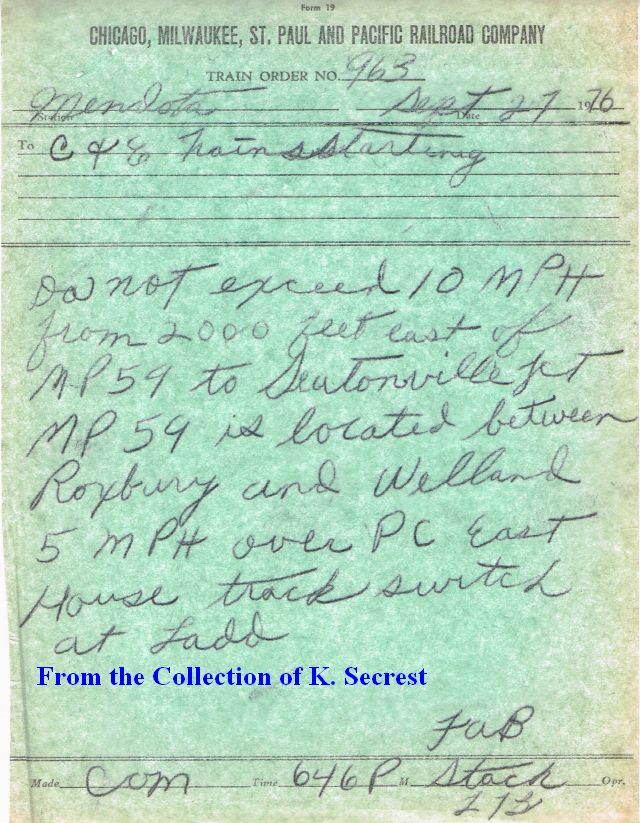 Form 19
CHICAGO, MILWAUKEE, ST. PAUL AND PACIFIC RAILROAD COMPANY
TRAIN ORDER NO. 963
Mendota Sept 27 1976
Station Date
To C & E Trains Starting
Do not exceed 10 MPH
from 2000 feet east of
MP 59 to Seatonville Jct
MP 59 is located between
Roxbury and Welland
5 MPH over PC East
House track switch
at Ladd
From the Collection of K. Secrest
FAB
Made Com Time 646 P M Stack Opr.